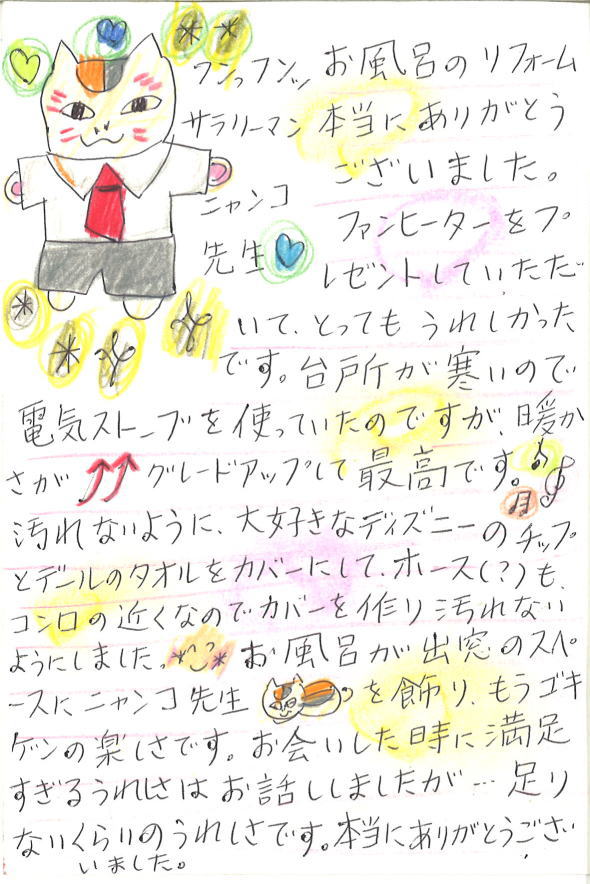 フンフンッ
サラリーマン
ニャンコ
先生
お風呂のリフォーム
本当にありがとう
ございました。
ファンヒーターをプ
レゼントしていただ
いて、とってもうれしかった
です。台所が寒いので
電気ストーブを使っていたのですが、暖か
さが グレードアップして最高です。
汚れないように、大好きなディズニーのチップ
とデールのタオルをカバーにして、ホース(?)も、
コンロの近くなのでカバーを作り汚れない
ようにしました。お風呂が出窓のスペ
ースにニャンコ先生 を飾り、もうゴキ
ゲンの楽しさです。お会いした時に満足
すぎるうれしさはお話ししましたが…足り
ないくらいのうれしさです。本当にありがとうござい
いました。